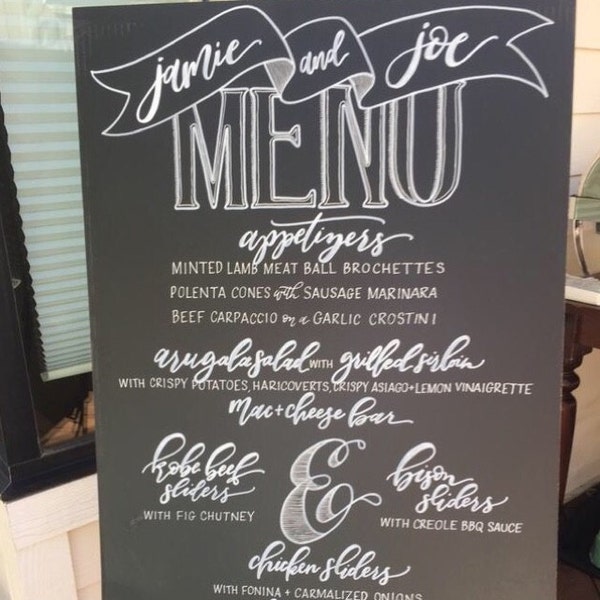 jamie and joe
MENU
appetizers
MINTED LAMB MEAT BALL BROCHETTES
POLENTA CONES with SAUSAGE MARINARA
BEEF CARPACCIO on a GARLIC CROSTINI
arugala salad WITH grilled sirloin
WITH CRISPY POTATOES, HARICOVERTS, CRISPY ASIAGO + LEMON VINAIGRETTE
mac + cheese bar
kobe beef
sliders
WITH FIG CHUTNEY
&
bison
sliders
WITH CREOLE BBQ SAUCE
chicken sliders
WITH FONINA + CARMALIZED ONIONS